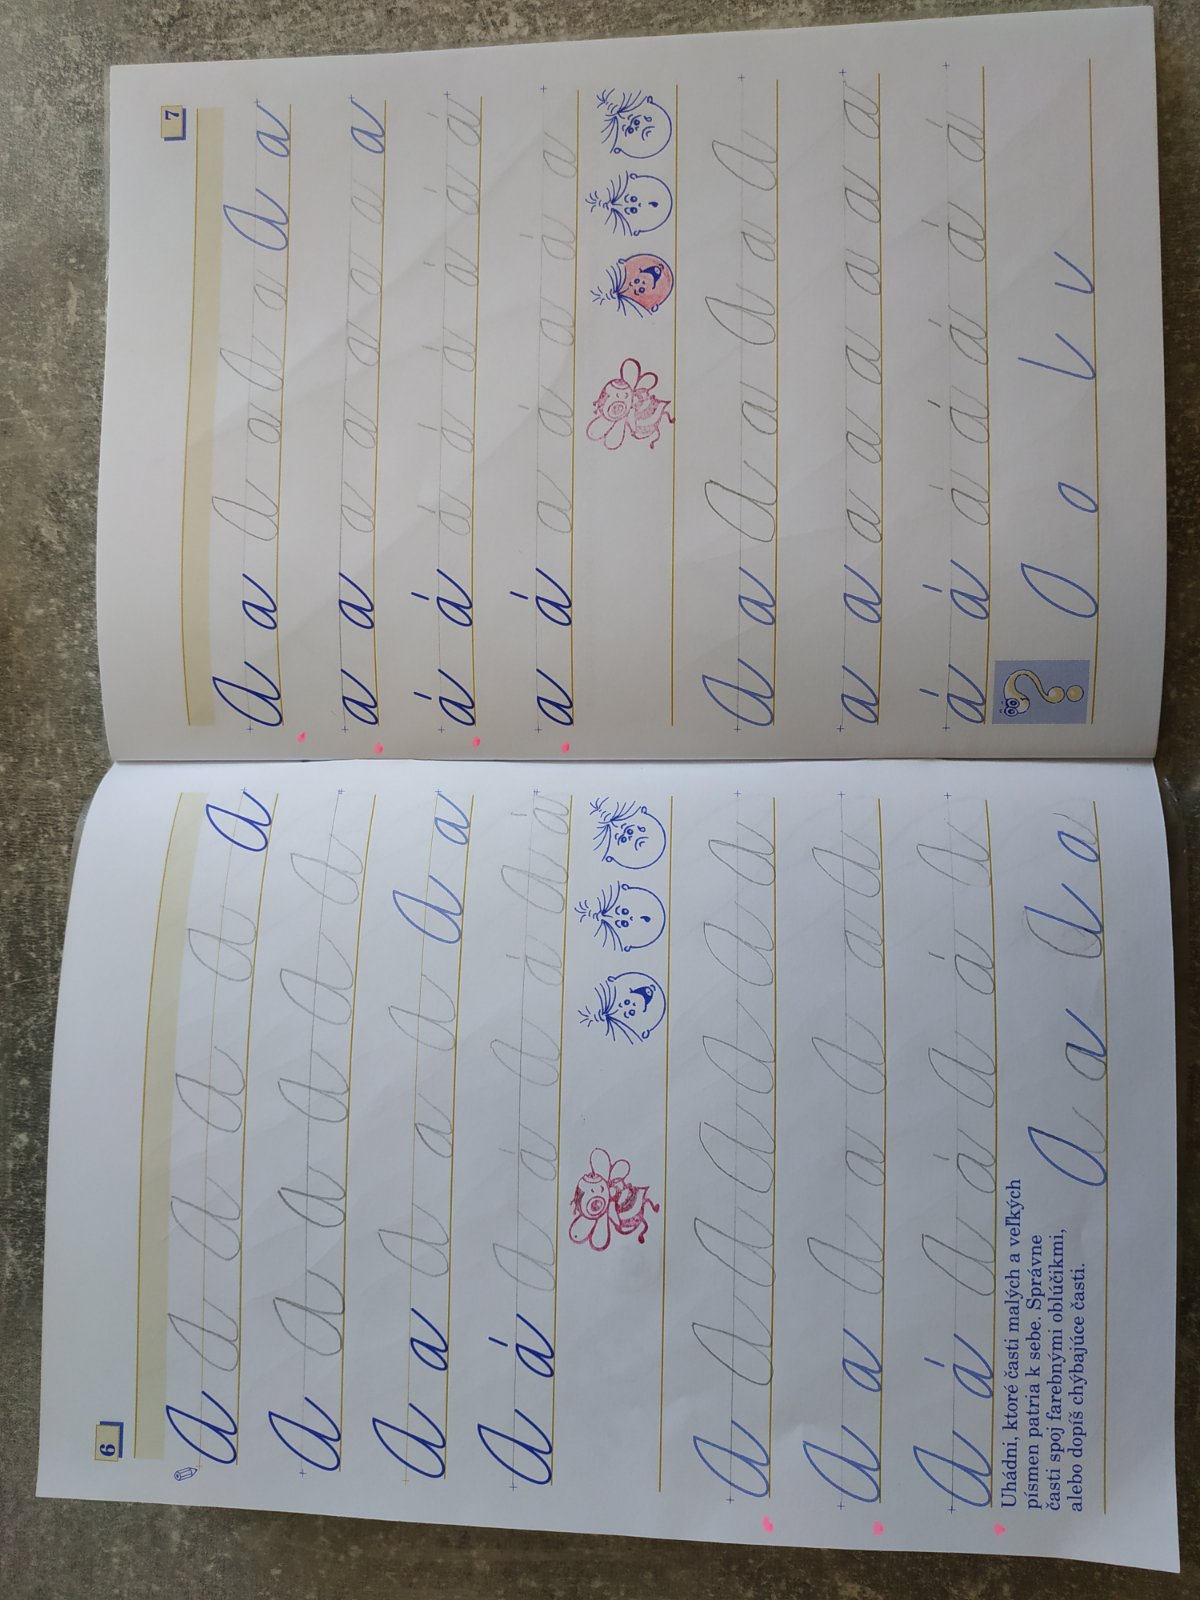 6
A A A A A A
A A A A A A
A a A a A A a
A á A á A á A á
A A A A A A A
A a A a A a A
A á A á A á A
Uhádni, ktoré časti malých a veľkých
písmen patria k sebe. Správne
časti spoj farebnými oblúčikmi,
alebo dopíš chýbajúce časti.
A a A a
7
A a A a A a A a
a a a a a a a a
á á á á á á á á
a á a á a á a
A a A a A a A
a a a a a a a a
á á á á á á á